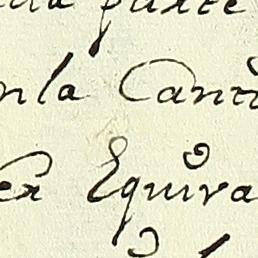 da parte
nla Canti
er Equiva